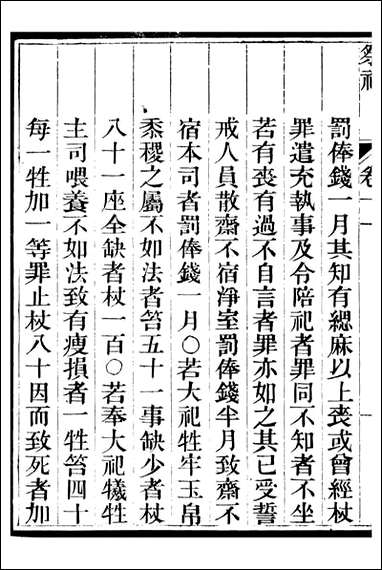 祭祀
卷十一
罰俸錢一月其知有緦麻以上喪或曾經杖
罪遣充執事及令陪祀者罪同不知者不坐
若有喪有過不自言者罪亦如之其已受誓
戒人員散齋不宿淨室罰俸錢半月致齋不
宿本司者罰俸錢一月○若大祀牲牢玉帛
黍稷之屬不如法者笞五十一事缺少者杖
八十一座全缺者杖一百○若奉大祀犧牲
主司喂養不如法致有瘦損者一牲笞四十
每一牲加一等罪止杖八十因而致死者加